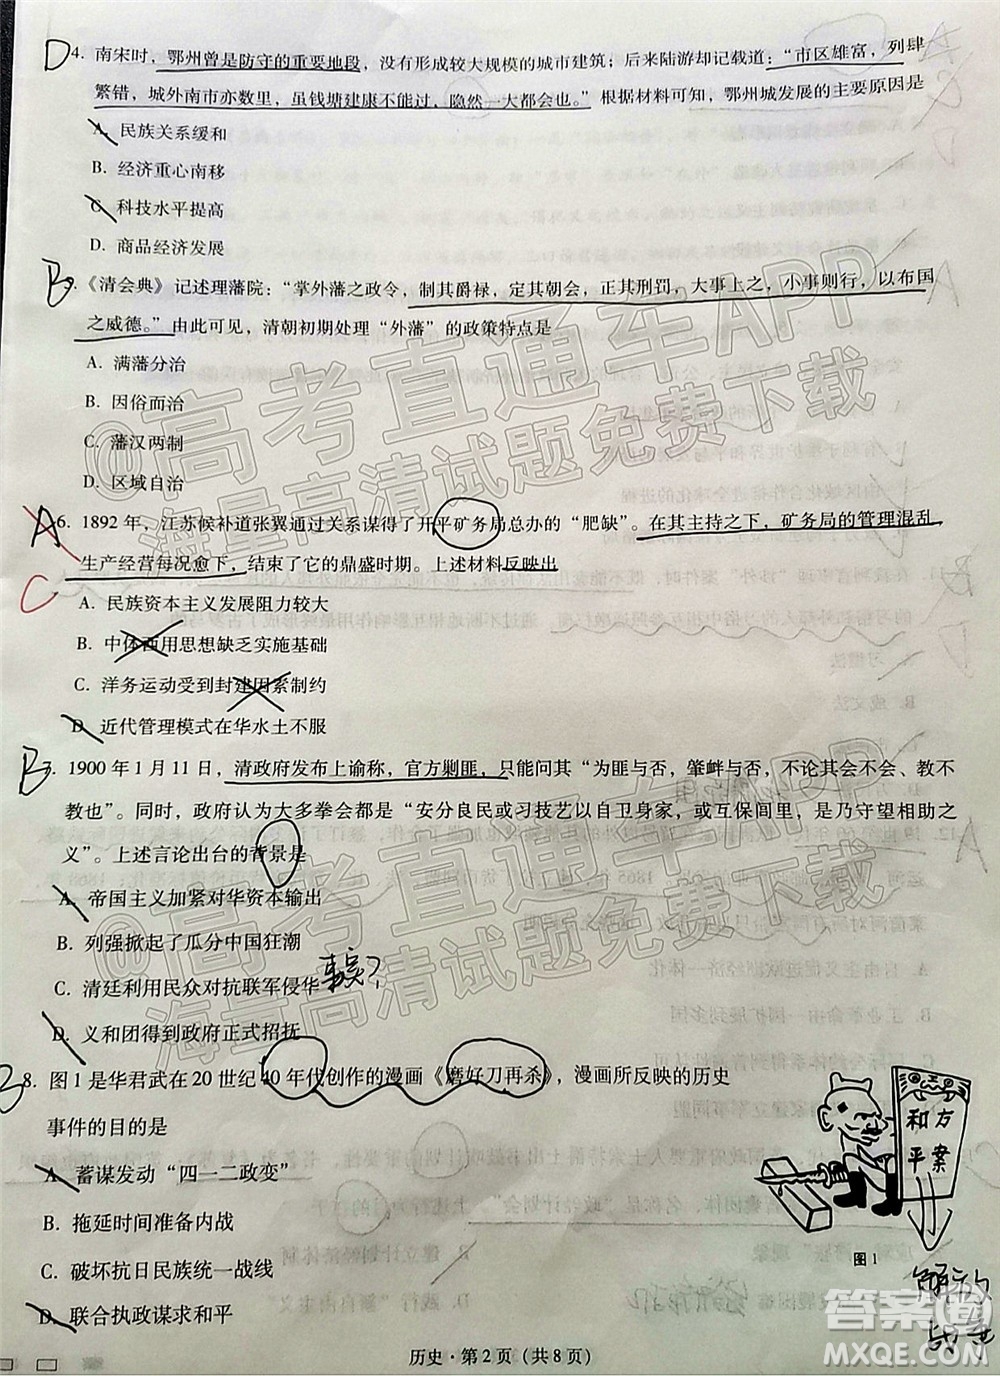 D 4. 南宋时，鄂州曾是防守的重要地段，没有形成较大规模的城市建筑；后来陆游却记载道：“市区雄富，列肆
繁错，城外南市亦数里，虽钱塘建康不能过，隐然一大都会也。”根据材料可知，鄂州城发展的主要原因是
A. 民族关系缓和
B. 经济重心南移
C. 科技水平提高
D. 商品经济发展
B 《清会典》记述理藩院：“掌外藩之政令，制其爵禄，定其朝会，正其刑罚，大事上之，小事则行，以布国
之威德。”由此可见，清朝初期处理“外藩”的政策特点是
A. 满藩分治
B. 因俗而治
C. 藩汉两制
D. 区域自治
A 6. 1892 年，江苏候补道张翼通过关系谋得了开平矿务局总办的“肥缺”。在其主持之下，矿务局的管理混乱，
C 生产经营每况愈下，结束了它的鼎盛时期。上述材料反映出
A. 民族资本主义发展阻力较大
B. 中体西用思想缺乏实施基础
C. 洋务运动受到封建因素制约
D. 近代管理模式在华水土不服
B 1900 年 1 月 11 日，清政府发布上谕称，官方剿匪，只能问其“为匪与否，肇衅与否，不论其会不会、教不
教也”。同时，政府认为大多拳会都是“安分良民或习技艺以自卫身家，或互保闾里，是乃守望相助之
义”。上述言论出台的背景是
A. 帝国主义加紧对华资本输出
B. 列强掀起了瓜分中国狂潮
C. 清廷利用民众对抗联军侵华
D. 义和团得到政府正式招抚
B 8. 图 1 是华君武在 20 世纪 40 年代创作的漫画《磨好刀再杀》，漫画所反映的历史
事件的目的是
A. 蓄谋发动“四一二政变”
B. 拖延时间准备内战
C. 破坏抗日民族统一战线
D. 联合执政谋求和平
和平
方案
图 1
解放
战争
历史·第 2 页（共 8 页）
@高考直通车APP
海量高清试题免费下载
@高考直通车APP
海量高清试题免费下载
答案圈
MXQE.COM